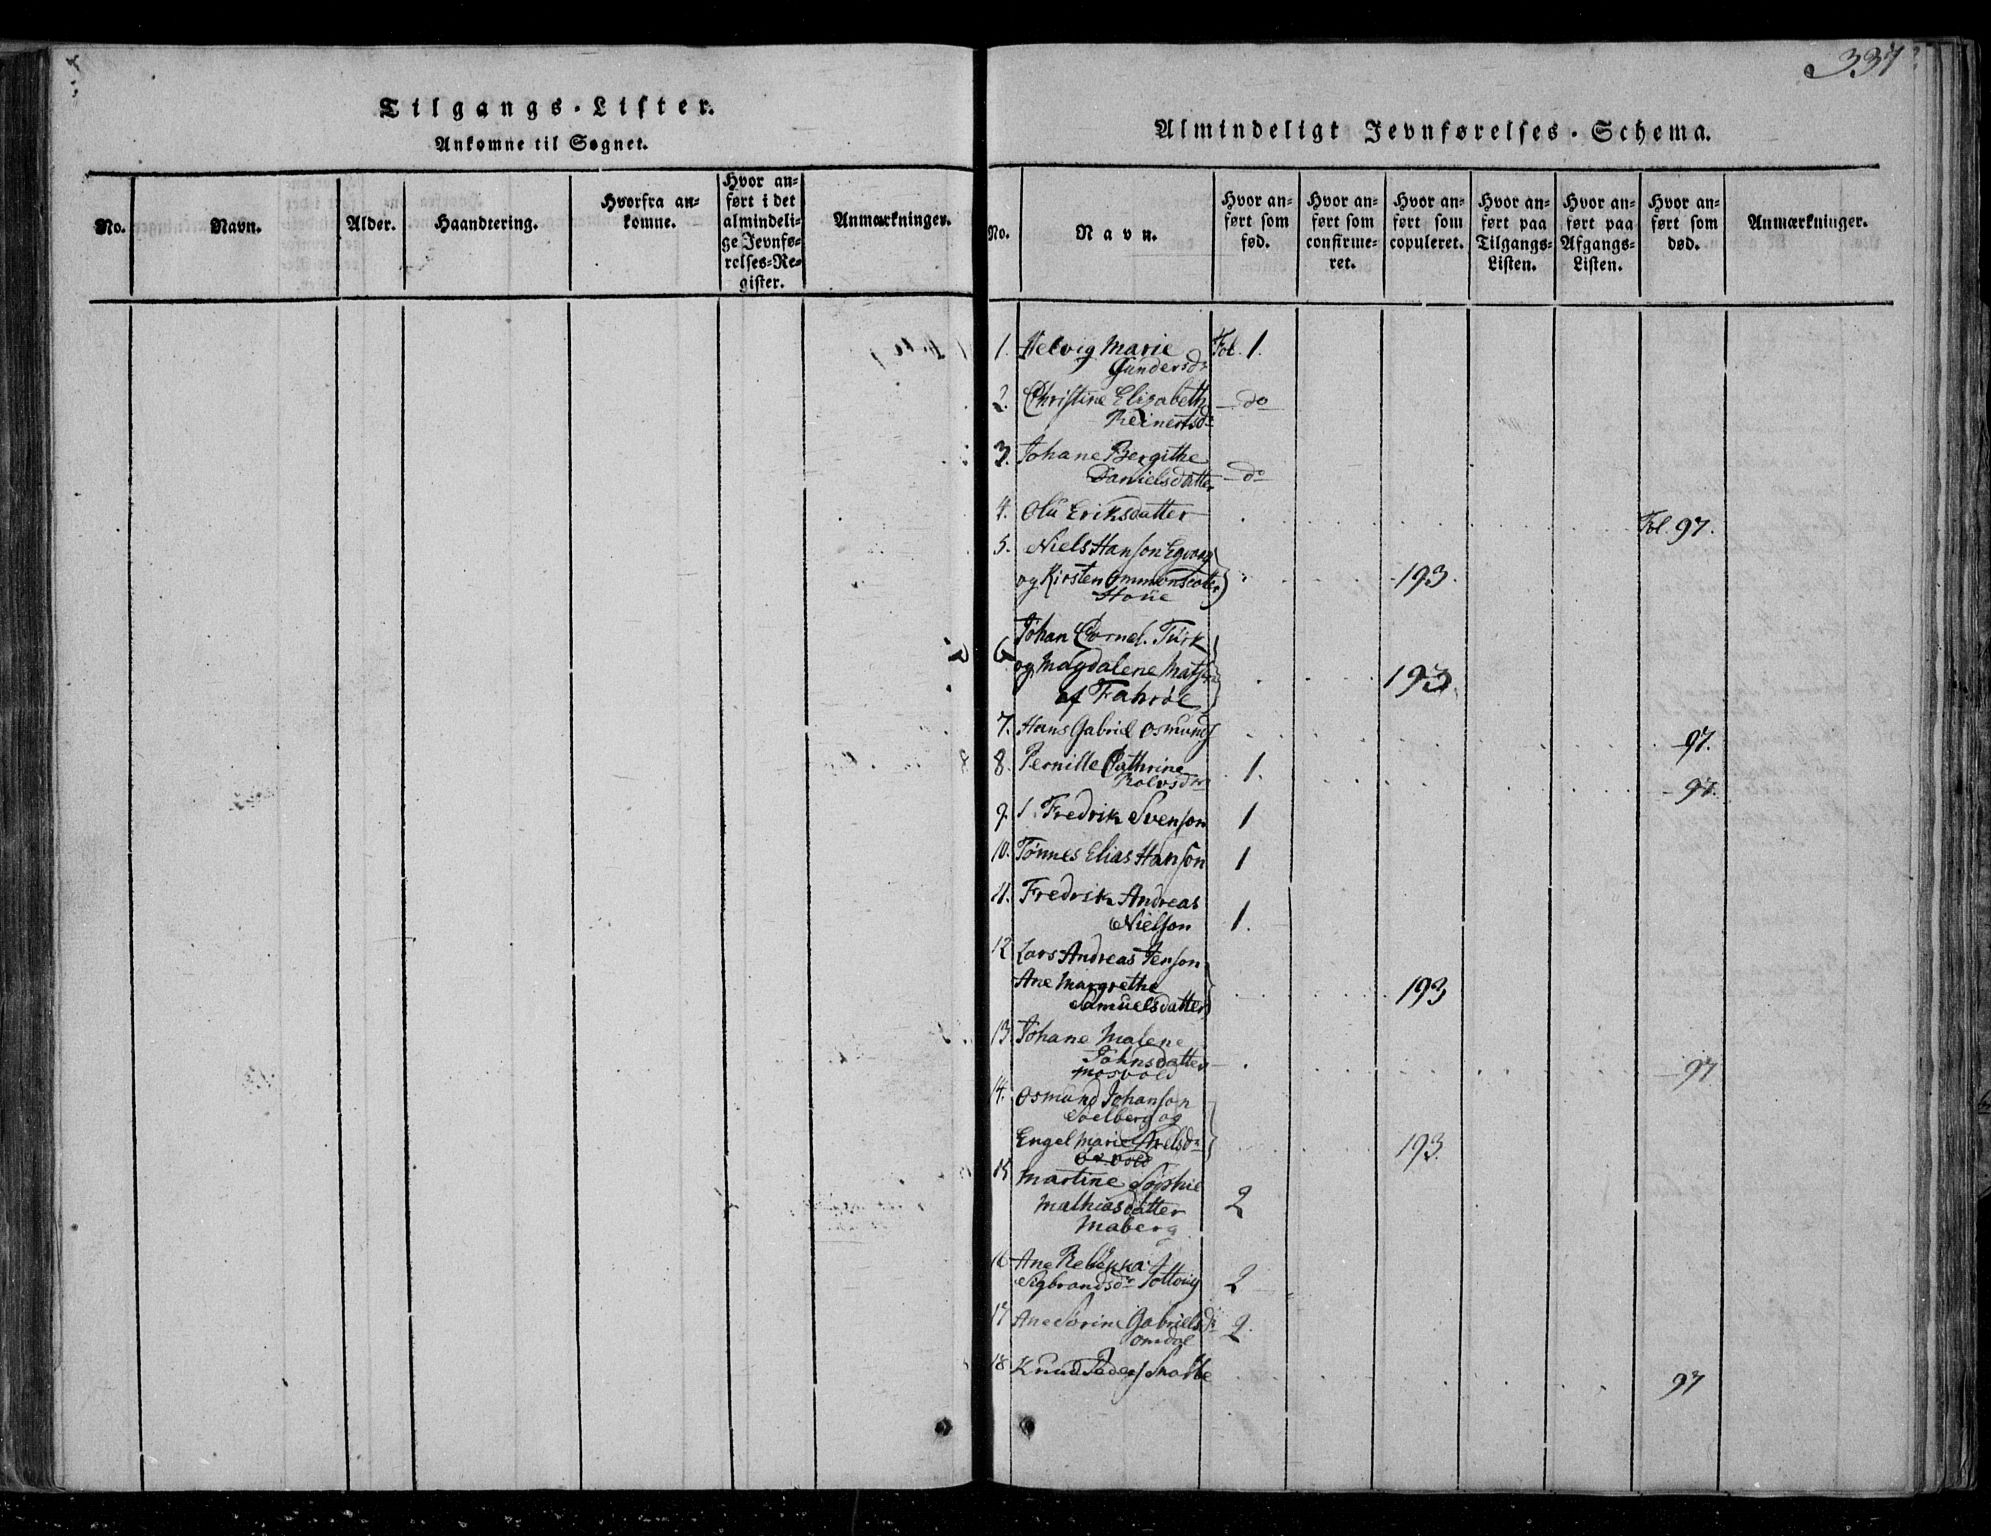 Tilgangs-Lister.
Ankomne til Sognet.
No.
Navn.
Alder.
Haandtering.
Hvorfra an-
komne.
Hvor an-
ført i det
almindeli-
ge Jevnfø-
relses-Re-
gister.
Anmærkninger.
337
Almindeligt Jevnførelses-Schema.
No.
Navn.
Hvor an-
ført som
fød.
Hvor an-
ført som
confirme-
ret.
Hvor an-
ført som
copuleret.
Hvor an-
ført paa
Tilgangs-
Listen.
Hvor an-
ført paa
Afgangs-
Listen.
Hvor an-
ført som
død.
Anmærkninger.
1. Helvig Marie Fol. 1.
Gundersdr
2. Christine Elisabeth do
Reinertsdr
3. Johane Bergithe
Danielsdatter do
4. Olü Eriksdatter Fol. 97.
5. Niels Hanson
og Kirsten Ommonsdatter 193.
Houe
Johan Cornel. Türk
6 og Magdalene 193.
af Fahröe
7. Hans Gabriel Osmunds 97.
8. Pernille Cathrine 1.
Rolvsdr 97.
9. Fredrik Svenson 1
10. Tönnes Elias Hanson 1
11. Fredrik Andreas
Nielson 1.
12 Lars Andreas Jenson
Ane Margrethe 193
Samuelsdatter
13. Johane Malene
Johnsdatter 97
Mosvold
14. Osmund Johanson
Soelberg og
Engel Marie 193.
15 Martine Sophie
Mathiasdatter 2
Maberg
16 Ane Rebekka
Sigbrandsdr 2
17 Ane Sorine Gabrielsdr 2.
Omdal
18 Knud 97